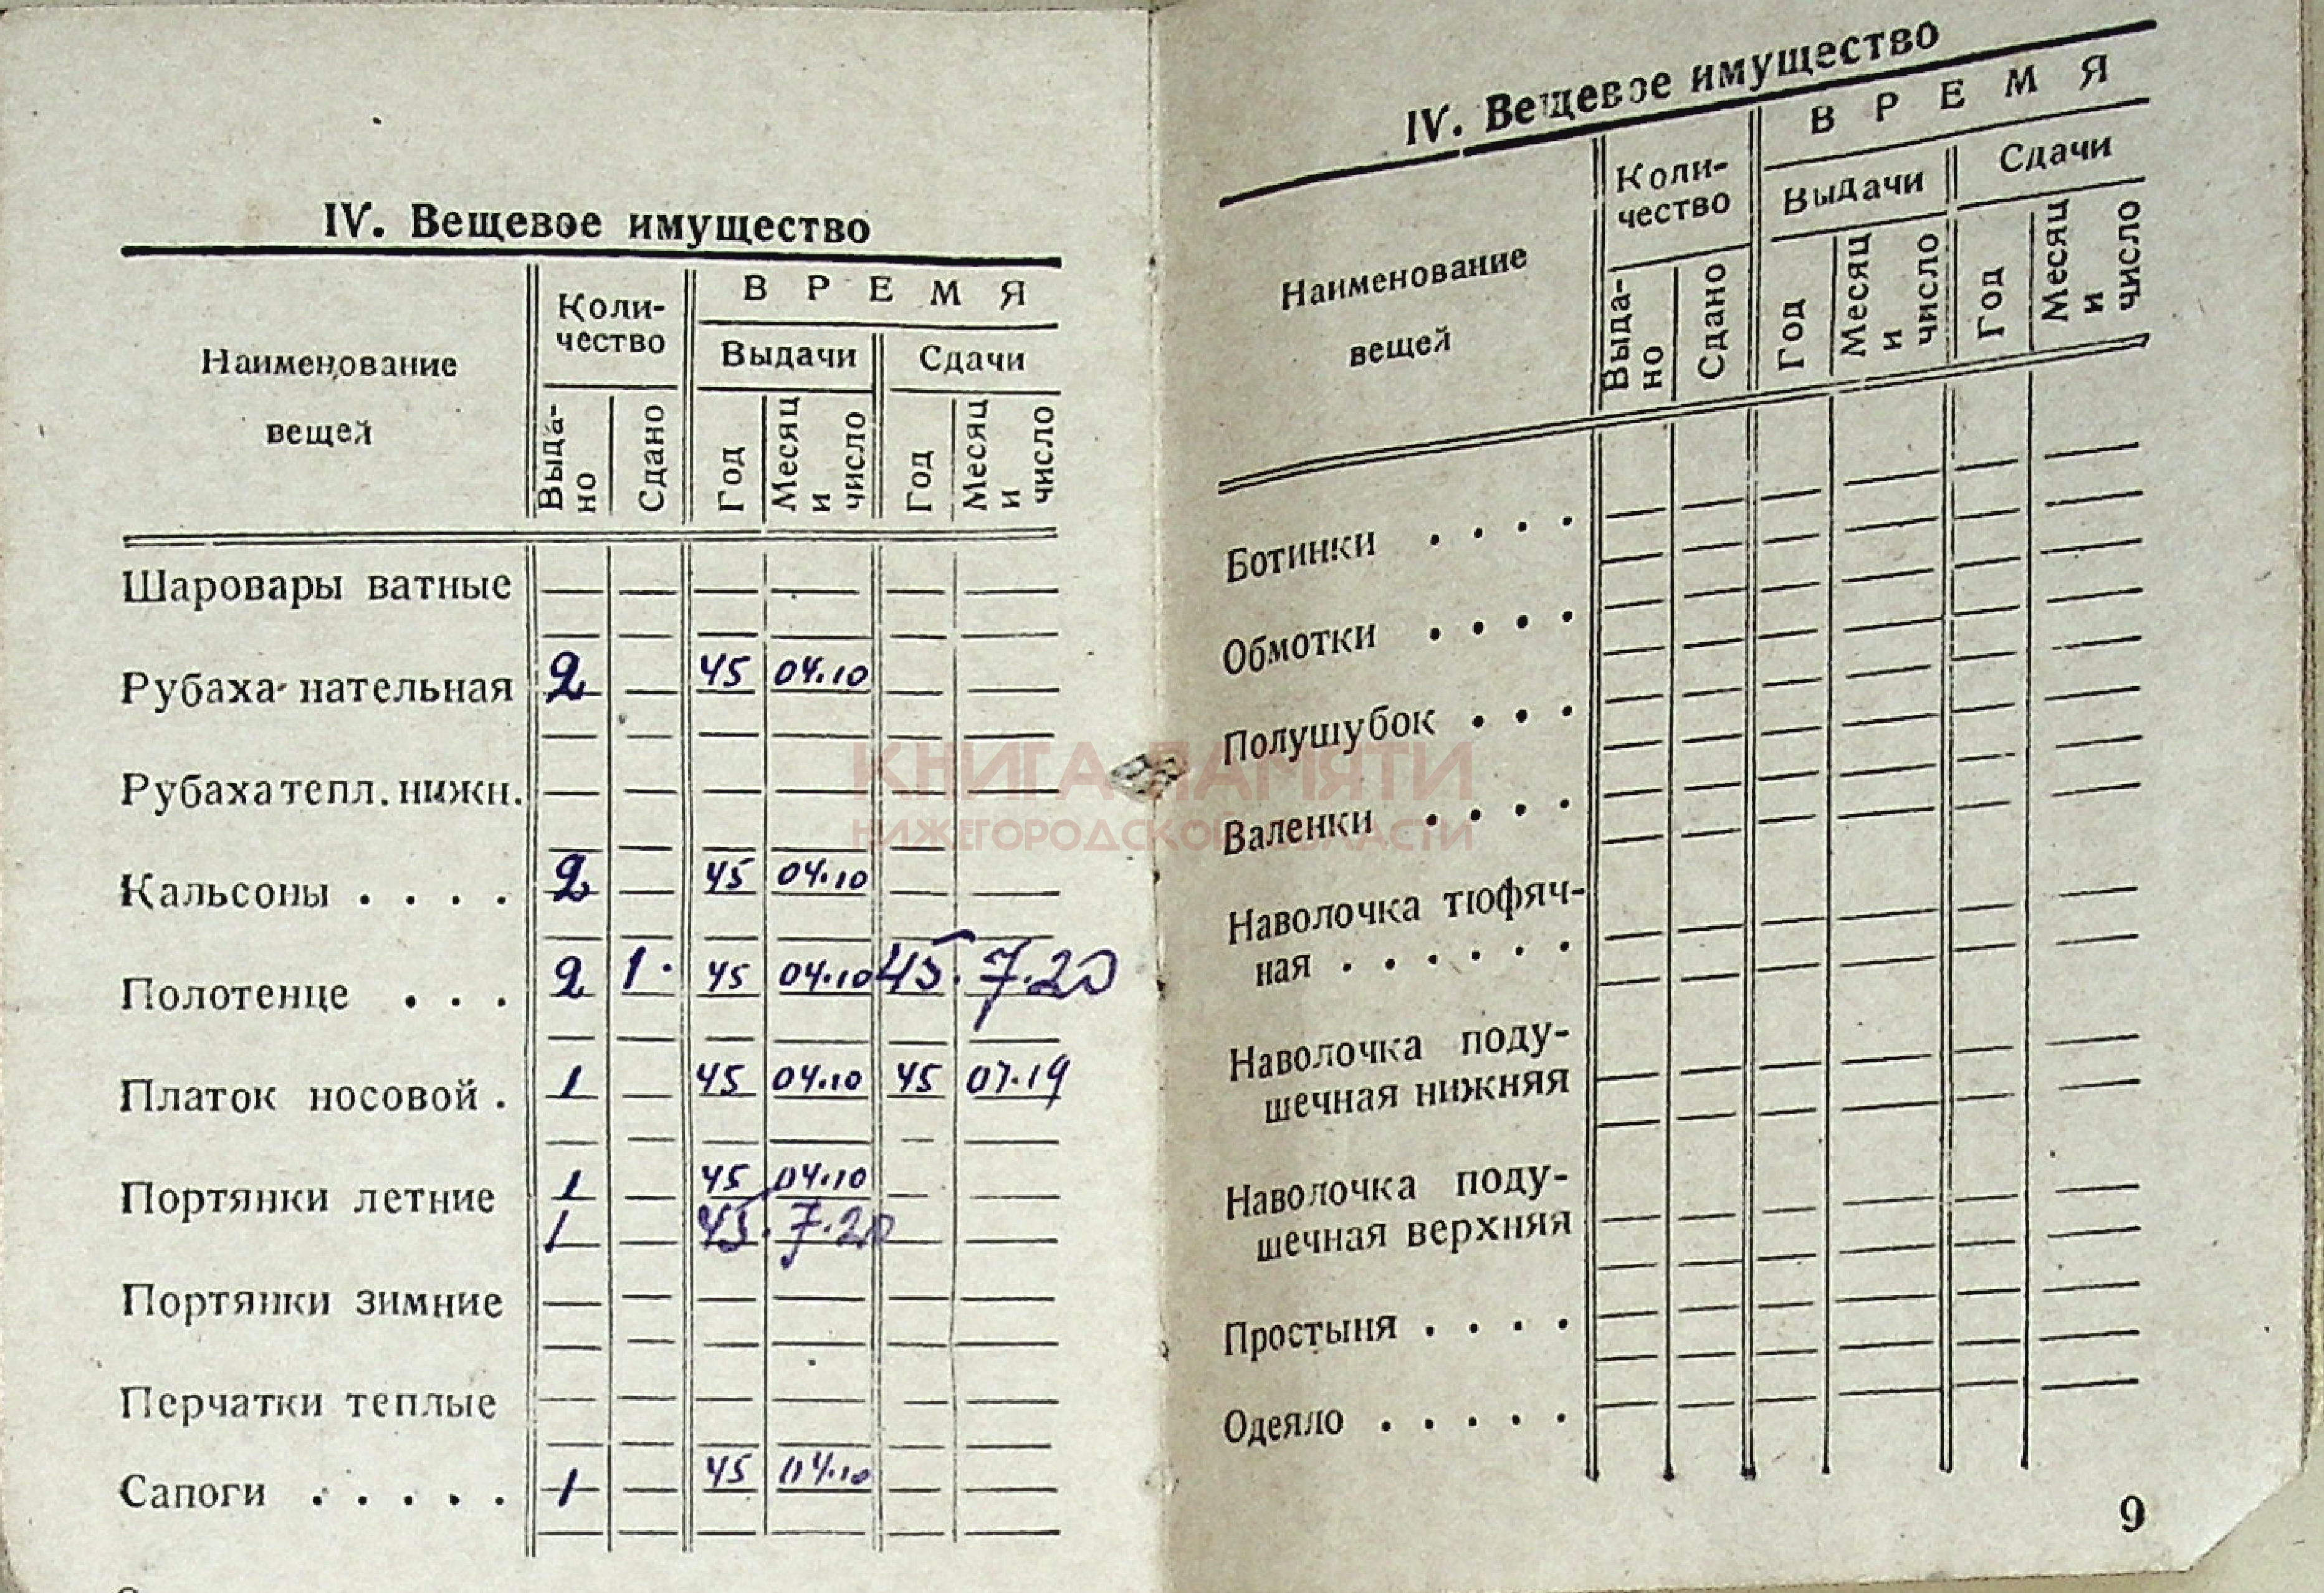 IV. Вещевое имущество
Наименование вещей
Коли-
чество
ВРЕМЯ
Выдачи
Сдачи
Выда-
но
Сдано
Год
Месяц
и
число
Год
Месяц
и
число
Шаровары ватные
Рубаха нательная 2 45 04.10
Рубаха тепл. нижн.
Кальсоны . . . . 2 45 04.10
Полотенце . . . 2 1. 45 04.10 45. 7.20
Платок носовой . 1 45 04.10 45 07.19
Портянки летние 1 45 04.10
1 45. 7.20
Портянки зимние
Перчатки теплые
Сапоги . . . . . 1 45 04.10
IV. Вещевое имущество
Наименование
вещей
Коли-
чество
ВРЕМЯ
Выдачи
Сдачи
Выда-
но
Сдано
Год
Месяц
и
число
Год
Месяц
и
число
Ботинки . . . .
Обмотки . . . .
Полушубок . . .
Валенки . . . .
Наволочка тюфяч-
ная . . . . . .
Наволочка поду-
шечная нижняя
Наволочка поду-
шечная верхняя
Простыня . . . .
Одеяло . . . . .
9
КНИГА ПАМЯТИ
НИЖЕГОРОДСКОЙ ОБЛАСТИ